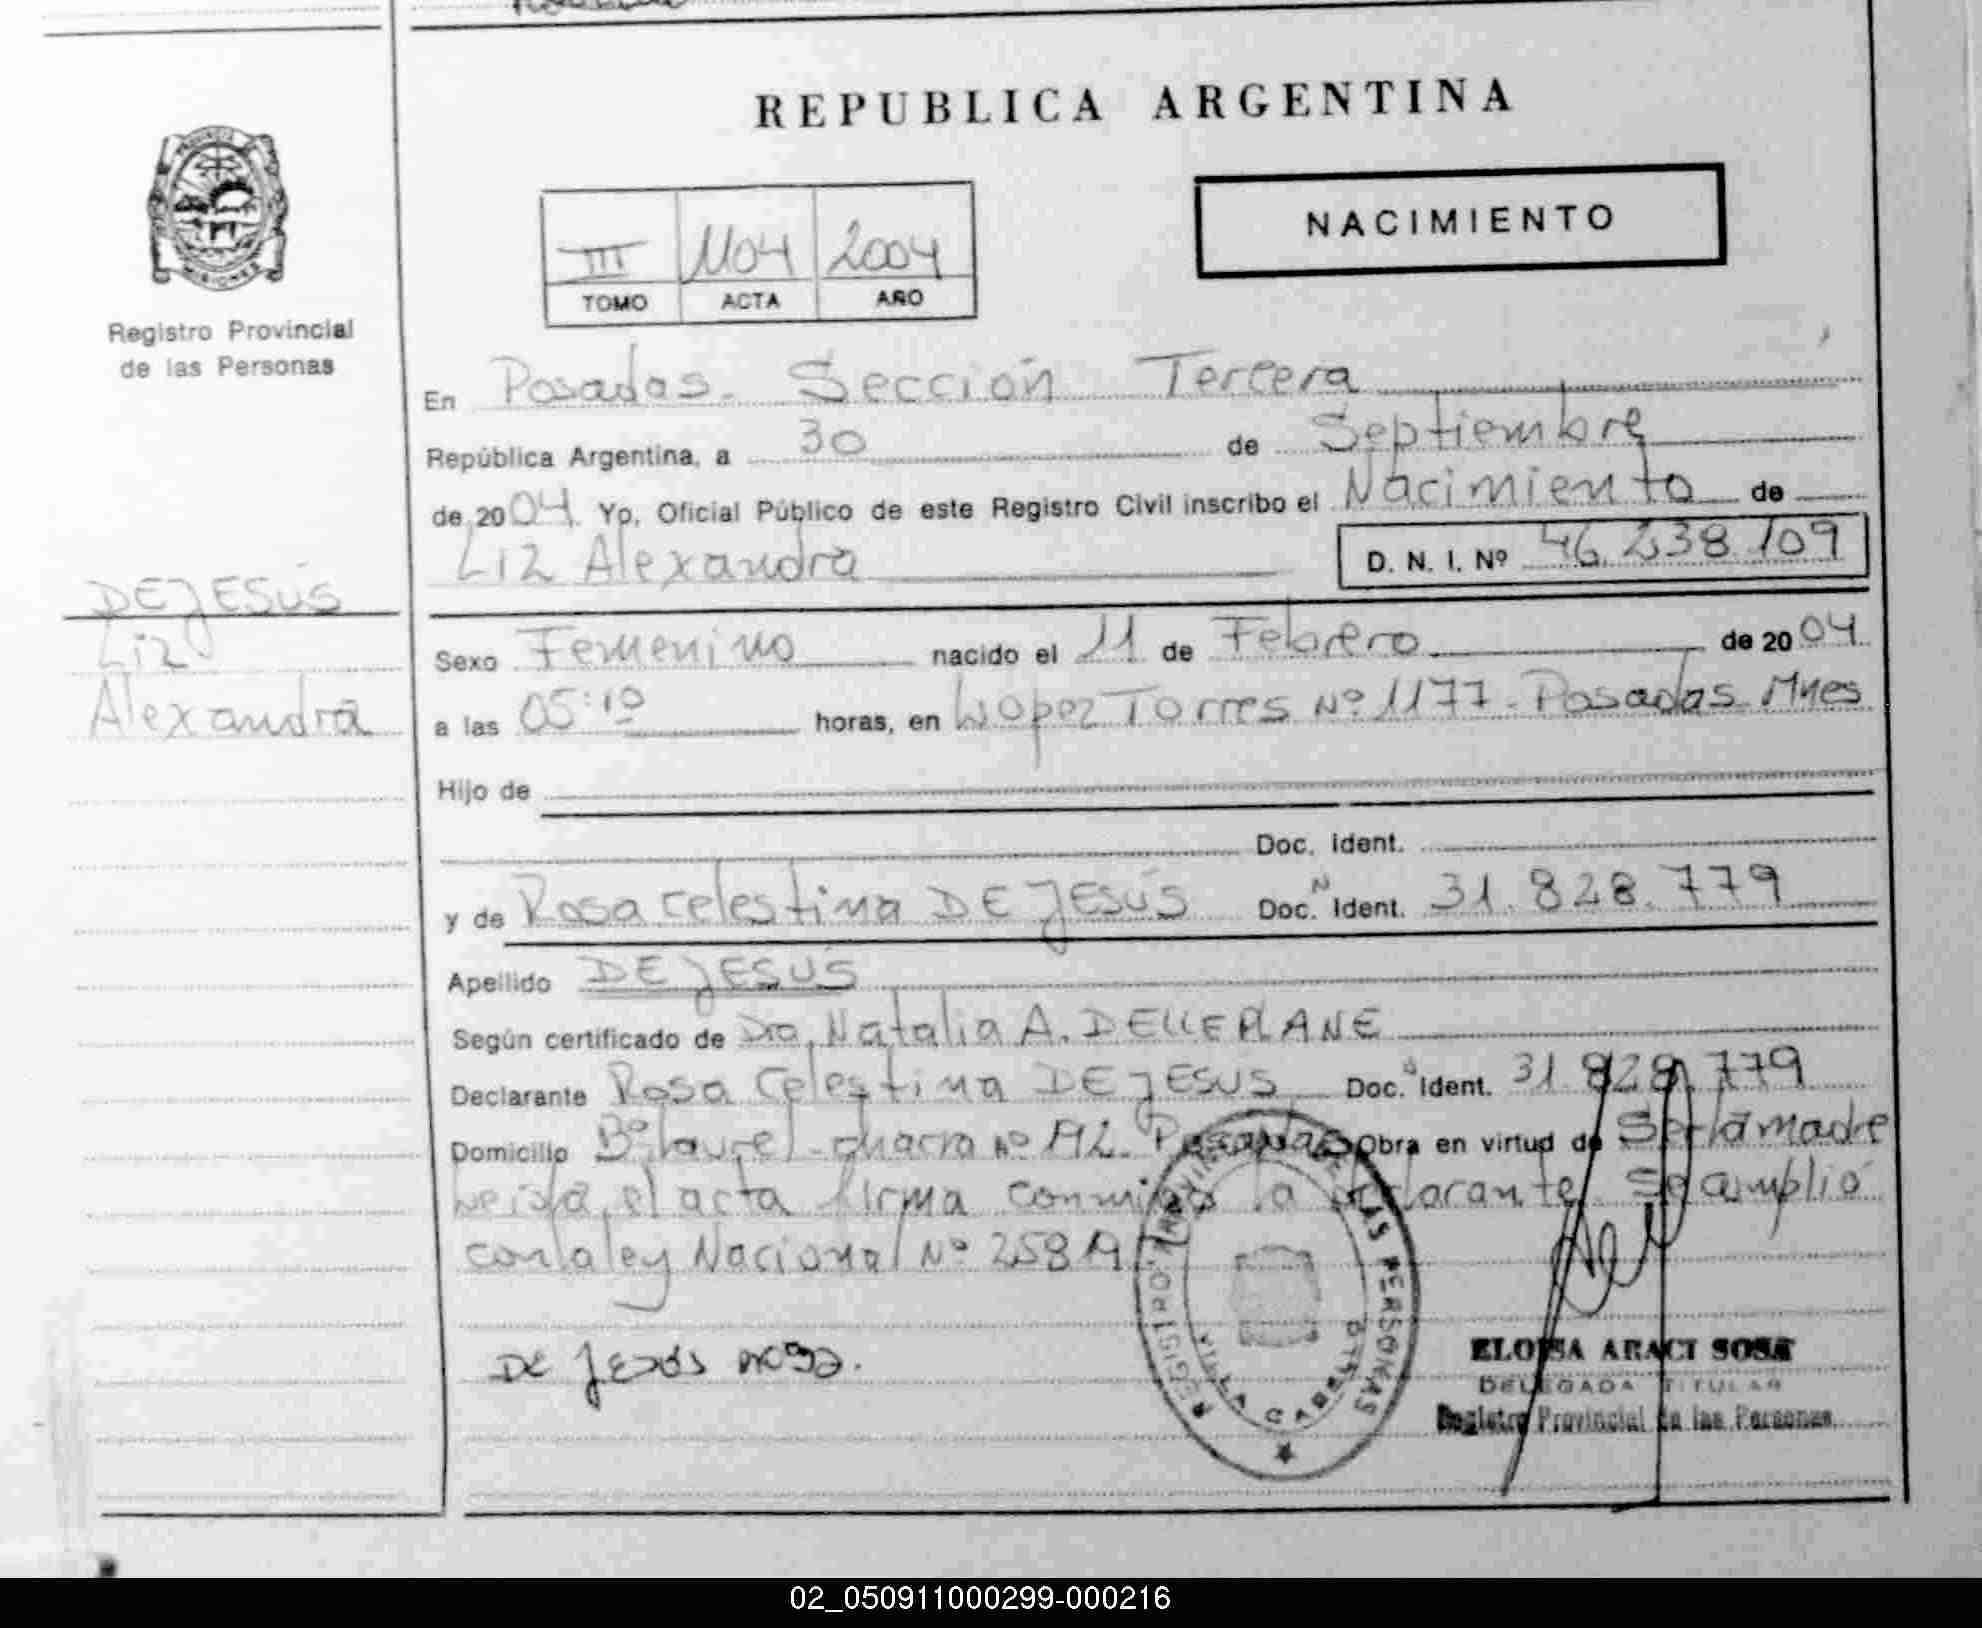 REPUBLICA ARGENTINA
NACIMIENTO
III 1104 2004
TOMO ACTA AÑO
Registro Provincial
de las Personas
En Posadas. Sección Tercera
República Argentina, a 30 de Septiembre
de 2004. Yo, Oficial Público de este Registro Civil inscribo el Nacimiento de
Liz Alexandra D. N. I. Nº 46.238.109
DE JESÚS
Liz
Alexandra
Sexo Femenino nacido el 11 de Febrero de 2004
a las 05:10 horas, en Lopez Torres Nº 1177 - Posadas Mnes
Hijo de
Doc. Ident.
y de Rosa Celestina DE JESÚS Doc. N Ident. 31.828.779
Apellido DE JESÚS
Según certificado de Dra. Natalia A. DELLEPLANE
Declarante Rosa Celestina DE JESUS Doc. Ident. 31.828.779
Domicilio Bº Laurel - chacra Nº 192. Posadas Obra en virtud de Ser la madre
leída el acta firma conmigo la declarante Se amplió
con la ley Nacional Nº 25819
DE JESÚS ROSA.
REGISTRO PROVINCIAL DE LAS PERSONAS
VILLA CABELLO
ELOISA ARACI SOSA
DELEGADA TITULAR
Registro Provincial de las Personas
02_050911000299-000216